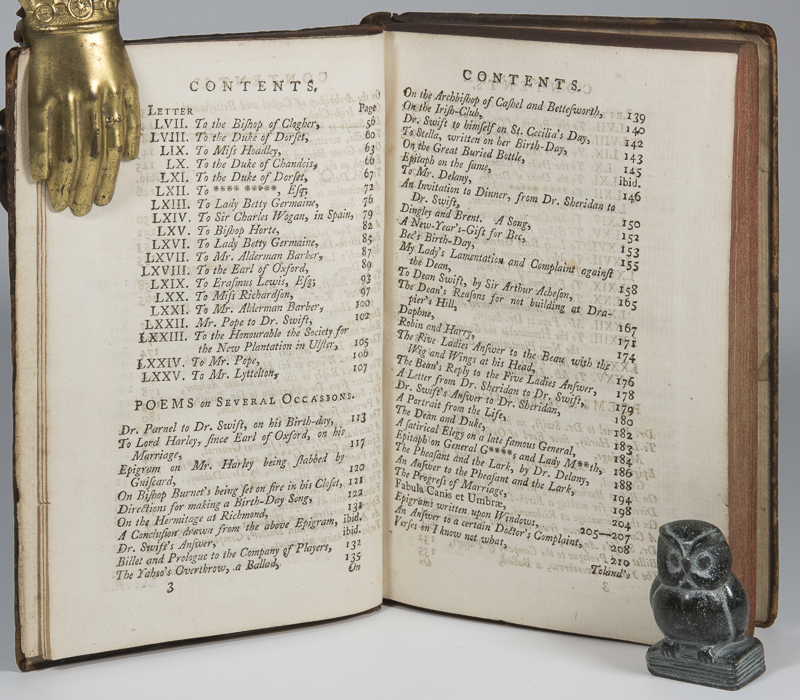 CONTENTS.
LETTER Page
LVII. To the Biſhop of Clogher, 56
LVIII. To the Duke of Dorſet, 60
LIX. To Miſs Hoadley, 63
LX. To the Duke of Chandois, 66
LXI. To the Duke of Dorſet, 67
LXII. To **** *****, Eſq; 72
LXIII. To Lady Betty Germaine, 76
LXIV. To Sir Charles Wogan, in Spain, 79
LXV. To Biſhop Horte, 82
LXVI. To Lady Betty Germaine, 85
LXVII. To Mr. Alderman Barber, 87
LXVIII. To the Earl of Oxford, 89
LXIX. To Eraſmus Lewis, Eſq; 93
LXX. To Miſs Richardſon, 97
LXXI. To Mr. Alderman Barber, 100
LXXII. Mr. Pope to Dr. Swift, 102
LXXIII. To the Honourable the Society for
the New Plantation in Ulſter, 105
LXXIV. To Mr. Pope, 106
LXXV. To Mr. Lyttelton, 107
POEMS on SEVERAL OCCASIONS.
Dr. Parnel to Dr. Swift, on his Birth-day, 113
To Lord Harley, ſince Earl of Oxford, on his
Marriage, 117
Epigram on Mr. Harley being ſtabbed by
Guiſcard, 120
On Biſhop Burnet's being ſet on fire in his Cloſet, 121
Directions for making a Birth-Day Song, 122
On the Hermitage at Richmond, 131
A Concluſion drawn from the above Epigram, ibid.
Dr. Swift's Anſwer, ibid.
Billet and Prologue to the Company of Players, 132
The Yaho's Overthrow, a Ballad, 135
3 On
CONTENTS.
On the Archbiſhop of Caſhel and Betteſworth, 139
On the Iriſh-Club, 140
Dr. Swift to himſelf on St. Cecilia's Day, 142
To Stella, written on her Birth-Day, 143
On the Great Buried Bottle, 145
Epitaph on the ſame, ibid.
To Mr. Delany, 146
An Invitation to Dinner, from Dr. Sheridan to
Dr. Swift, 150
Dingley and Brent. A Song, 152
A New-Year's-Gift for Bec, 153
Bec's Birth-Day, 155
My Lady's Lamentation and Complaint againſt
the Dean, 158
To Dean Swift, by Sir Arthur Acheſon, 165
The Dean's Reaſons for not building at Dra-
pier's Hill, 167
Daphne, 171
Robin and Harry, 174
The Five Ladies Anſwer to the Beau with the
Wig and Wings at his Head, 176
The Beau's Reply to the Five Ladies Anſwer, 178
A Letter from Dr. Sheridan to Dr. Swift, 179
Dr. Swift's Anſwer to Dr. Sheridan, 180
A Portrait from the Life, 182
The Dean and Duke, 183
A ſatirical Elegy on a late famous General, 184
Epitaph on General G****; and Lady M**th, 186
The Pheaſant and the Lark, by Dr. Delany, 188
An Anſwer to the Pheaſant and the Lark, 194
The Progreſs of Marriage, 198
Fabula Canis et Umbræ, 204
Epigrams written upon Windows, 205—207
An Anſwer to a certain Doctor's Complaint, 208
Verſes on I know not what, 210
Toland's